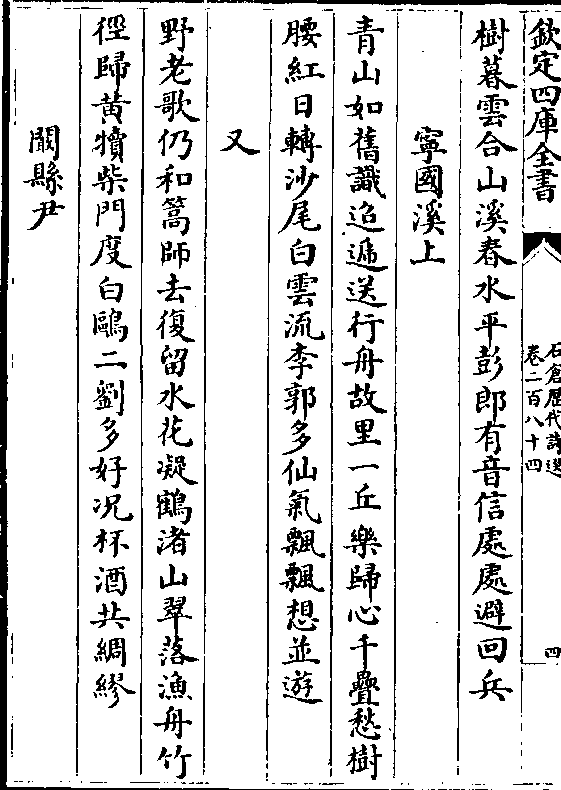 欽定四庫全書
石倉歷代詩選
卷二百八十四
四
樹暮雲合山溪春水平彭郎有音信處處避回兵
寧國溪上
青山如舊識迢遞送行舟故里一丘樂歸心千疊愁樹
腰紅日轉沙尾白雲流李郭多仙氣飄飄想並遊
又
野老歌仍和篙師去復留水花凝鶴渚山翠落漁舟竹
徑歸黃犢柴門度白鷗二劉多好况杯酒共綢繆
闕縣尹